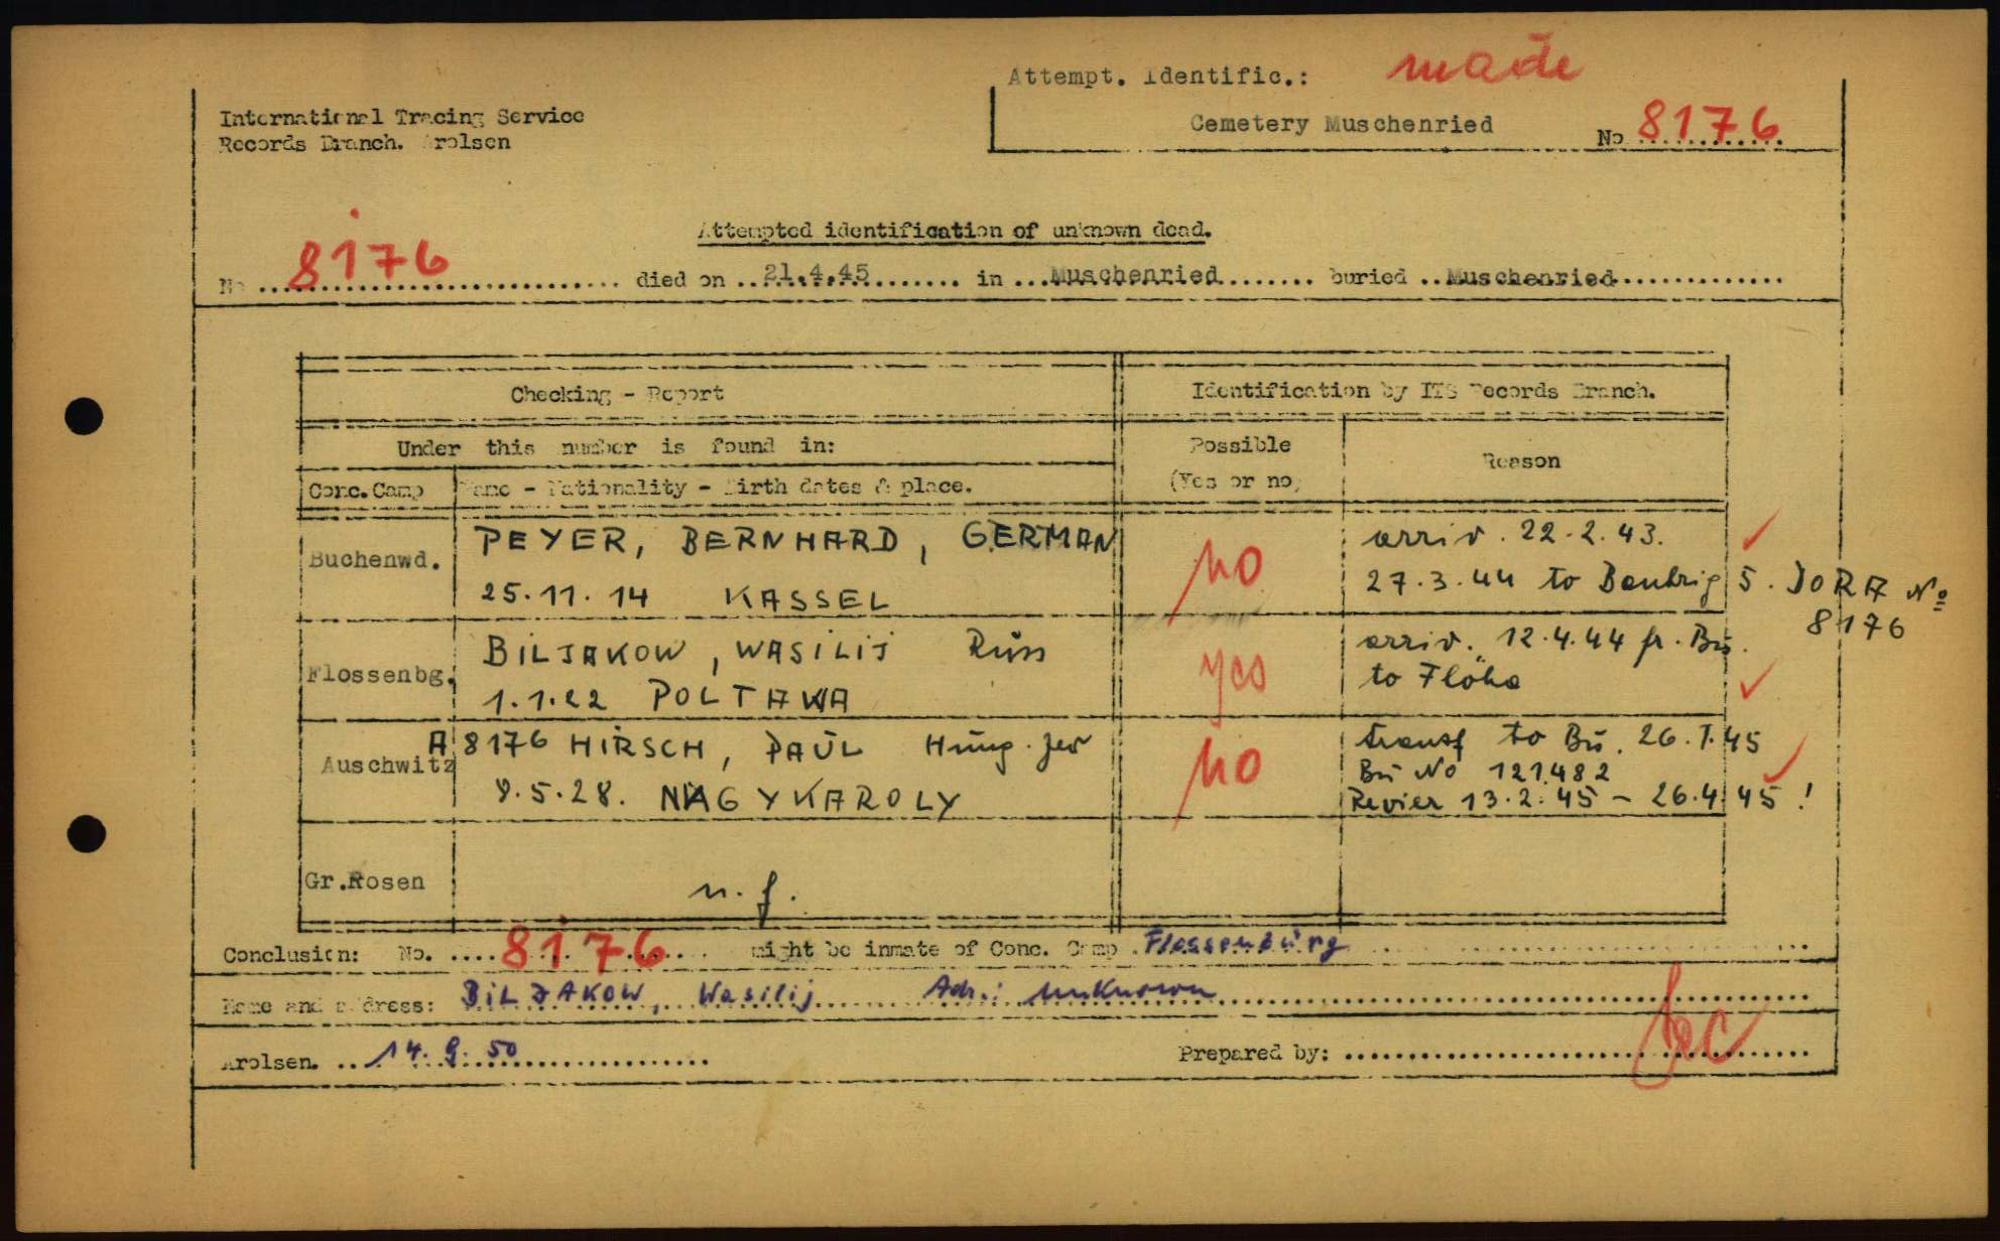 Attempt. Identific.: made
International Tracing Service
Cemetery Muschenried No 8176
Records Branch. Arolsen
Attempted identification of unknown dead.
No 8176 died on 21.4.45 in Muschenried buried Muschenried
Checking - Report
Identification by ITS Records Branch.
Under this number is found in:
Possible
(Yes or no)
Reason
Conc.Camp
Name - Nationality - Birth dates & place.
Buchenwd.
PEYER, BERNHARD, GERMAN
25.11.14 KASSEL
no
arriv. 22.2.43.
27.3.44 to 5. DORA No
8176
Flossenbg.
BILJAKOW, WASILIJ Russ
1.1.22 POLTAWA
yes
arriv. 12.4.44 fr. Bu.
to Flöha
Auschwitz
A 8176 HIRSCH, PAUL Hung. Jew
9.5.28. NAGYKAROLY
no
transf to Bu. 26.1.45
Bu No 121482
Revier 13.2.45 - 26.4.45!
Gr.Rosen
n.f.
Conclusion: No. 8176 might be inmate of Conc. Camp Flossenburg
Name and address: BILJAKOW, Wasilij Adr.: unknown
Arolsen. 14.9.50
Prepared by: